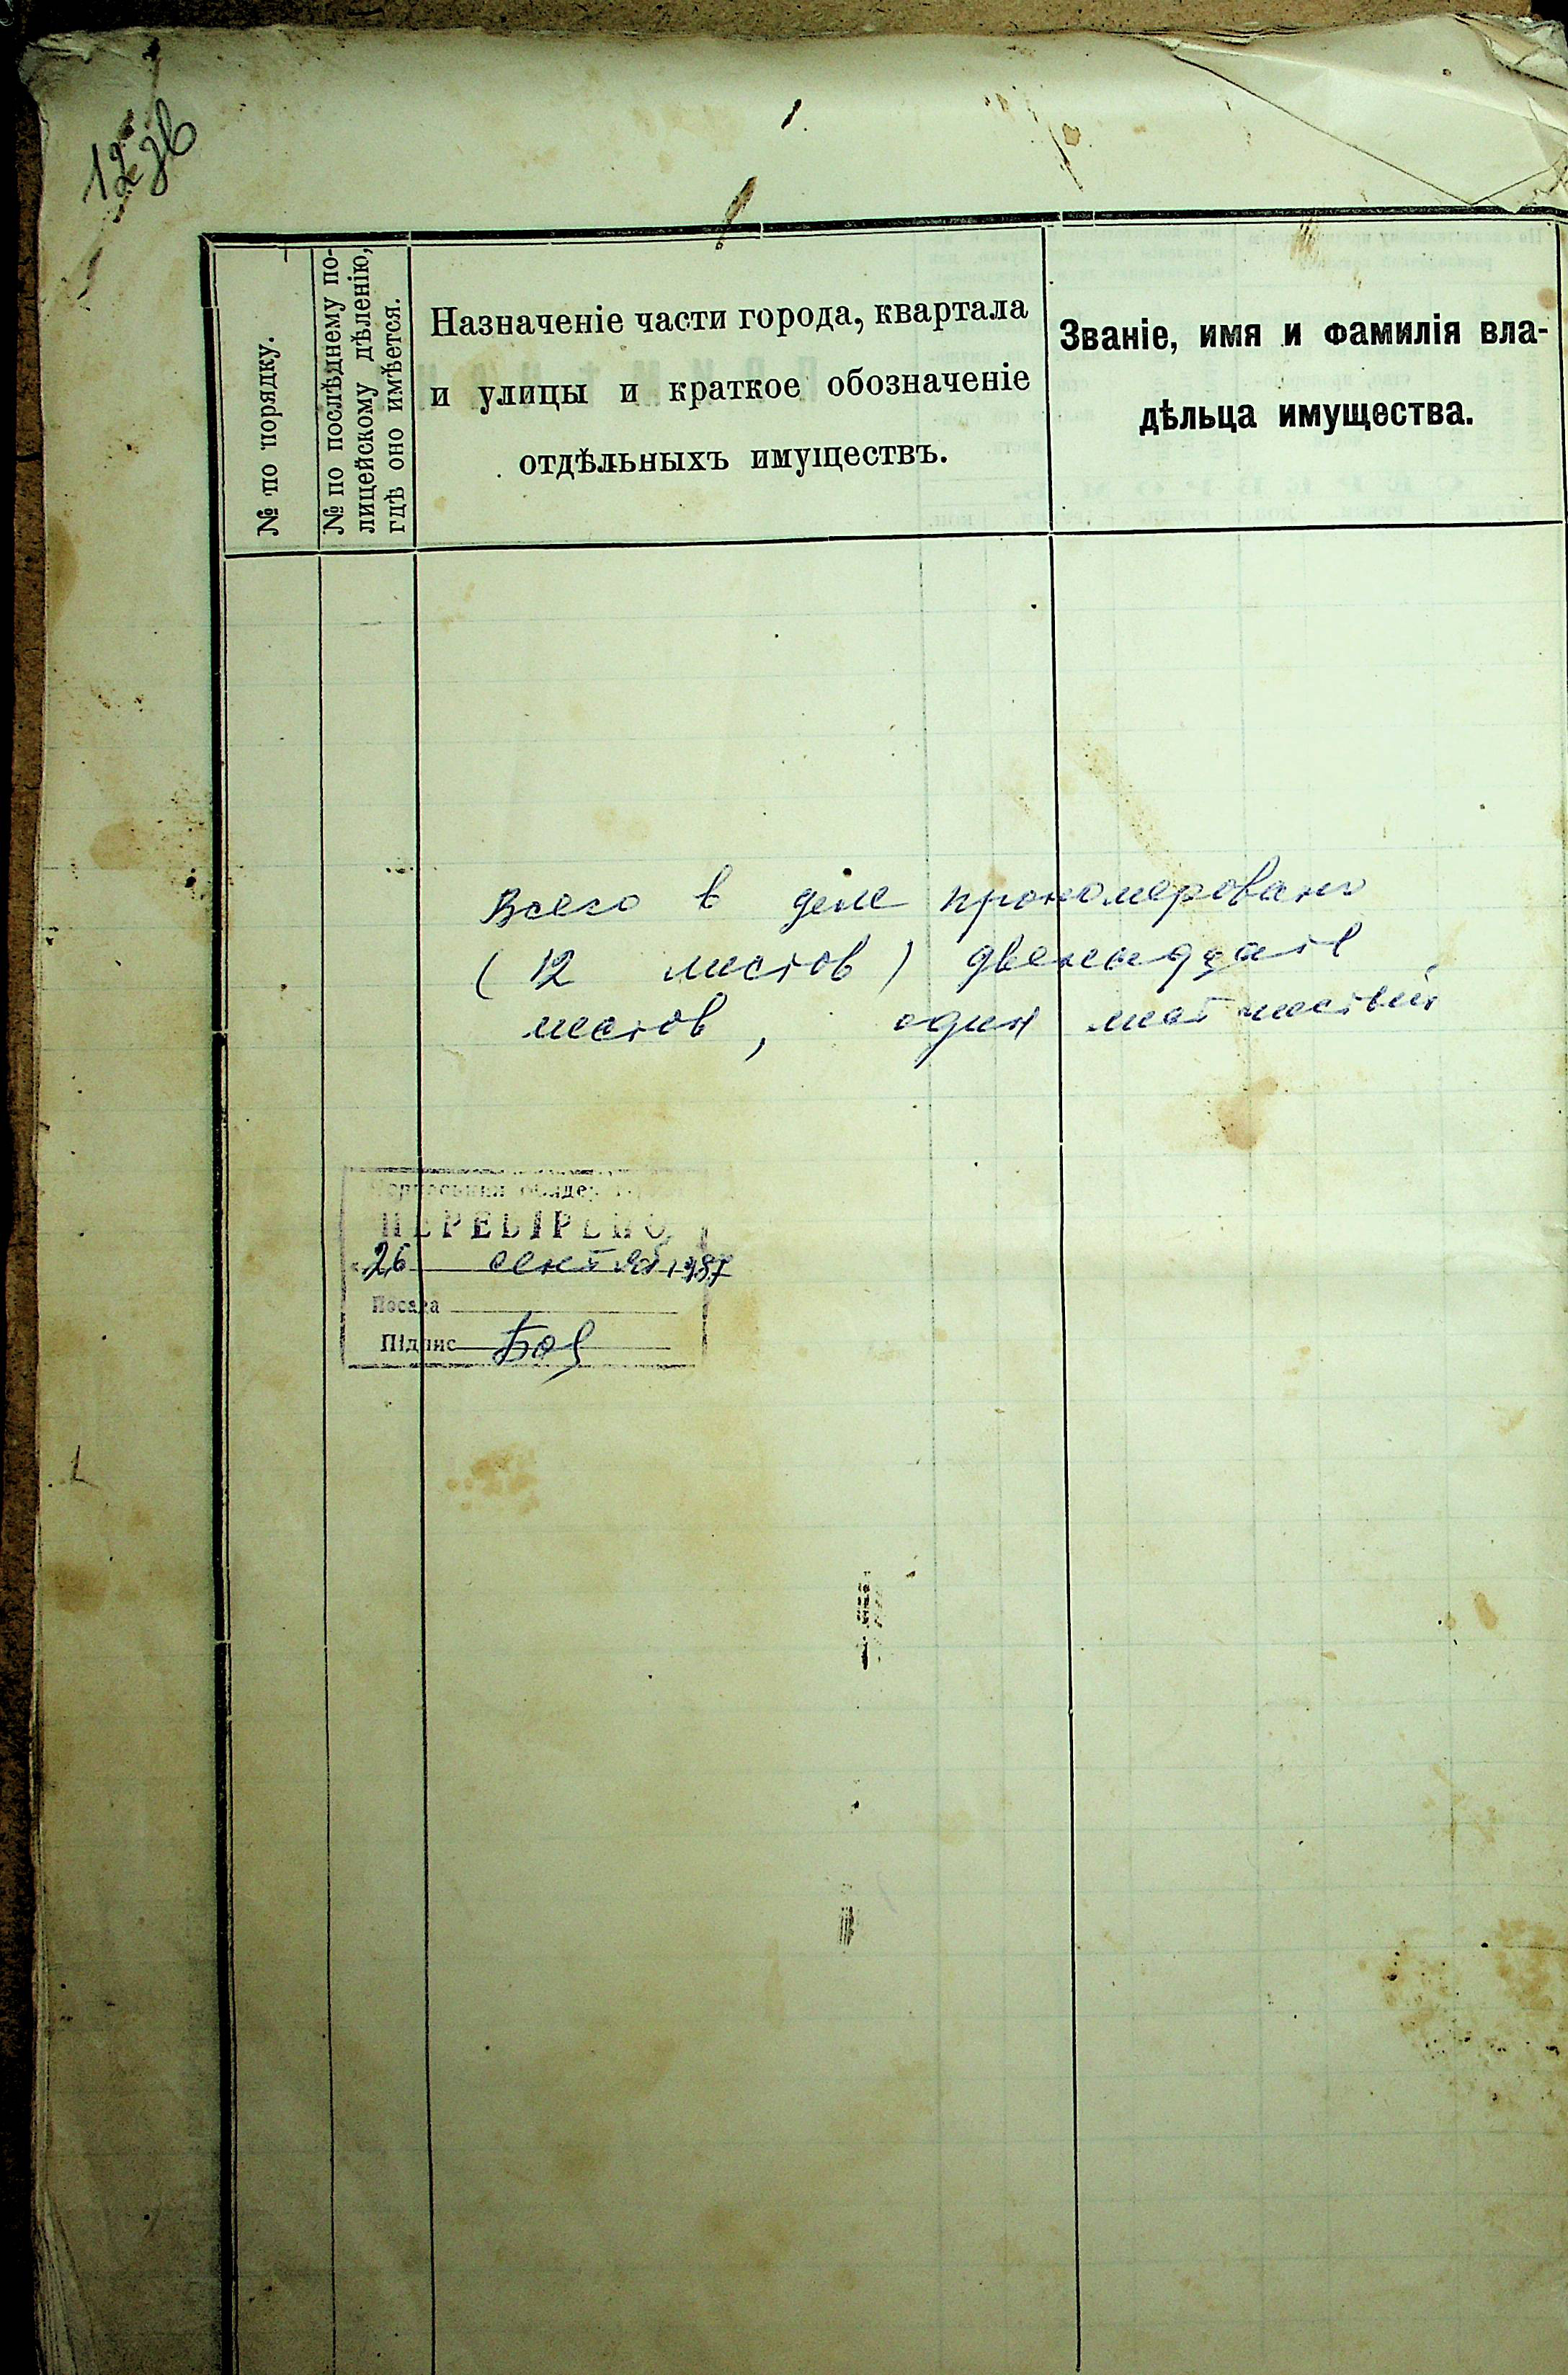 12 зв
№ по порядку.
№ по послѣднему по-
лицейскому дѣленію,
гдѣ оно имѣется.
Назначеніе части города, квартала
и улицы и краткое обозначеніе
отдѣльныхъ имуществъ.
Званіе, имя и фамилія вла-
дѣльца имущества.
Всего в деле прономеровано
( 12 листов ) двенадцать
листов, один лист чистый
ПЕРЕВІРЕНО
26 сентя 1987
Посада
Підпис